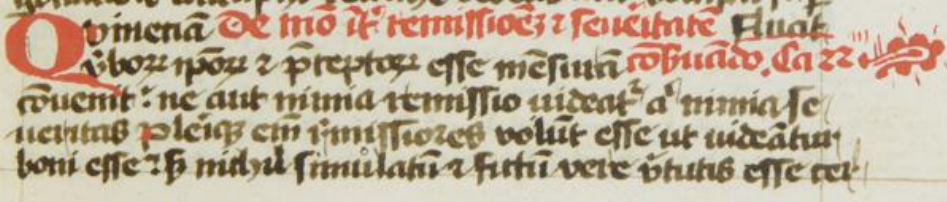 Qvinetiā De mō īt̓ remissioēz ⁊ seueritatē
v̓boꝝ ip̄oꝝ ⁊ p̄ceptoꝝ esse mēsurā cōẜuādo. Ca 22
cōuenit : ne aut nimia remissio uideatᷣ aᵗ nimia se
ueritas Pleiqꝫ em̄ r̓missiores volūt esse ut uideātur
boni esse : ẜꝫ nichil simulatū ⁊ fictū vere v̓tutis esse cer